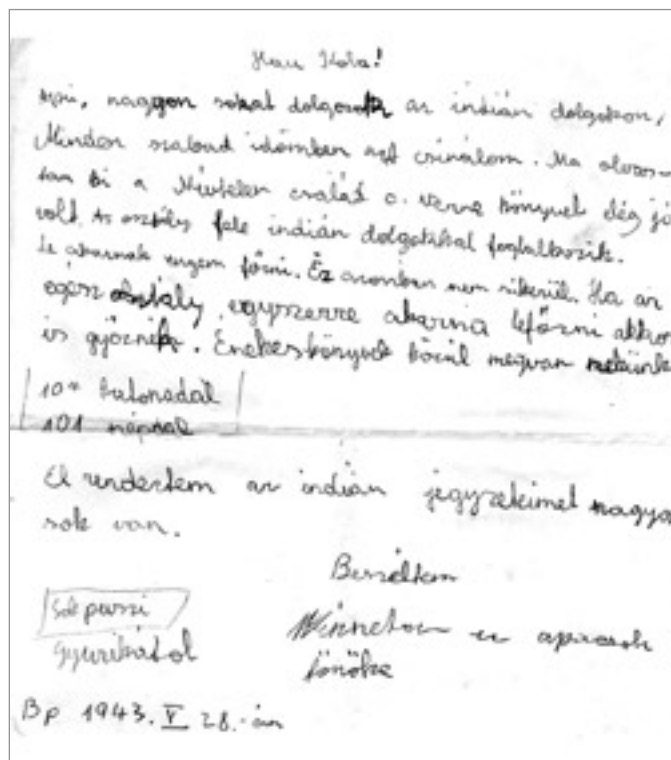 Hau Kola!
Api, nagyon sokat dolgozok az indián dolgokon,
Minden szabad időmben azt csinálom. Ma olvas-
tam ki a Névtelen család c. Verne könyvet elég jó
volt. Az osztály fele indián dolgokkal foglalkozik.
Le akarnak engem főzni. Ez azonban nem sikerül. Ha az
egész osztály egyszerre akarna lefőzni akkor
is győznék. Énekeskönyvek közül megvan nekünk
101 katonadal
101 népdal
El rendeztem az indián jegyzeteimet nagyo
sok van.
Beszéltem
Sok puszi
Winnetou az apacsok
Gyurikától
főnöke
Bp 1943. V 28.-án